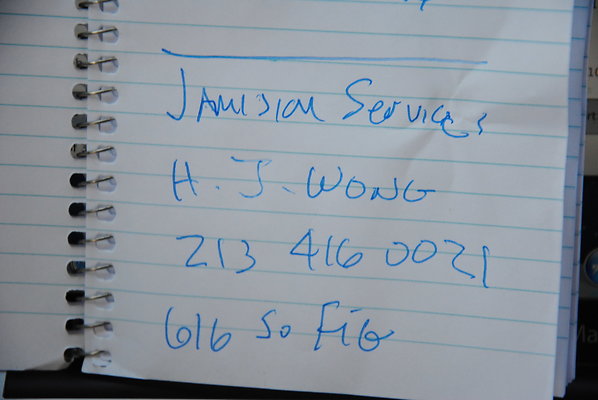 JAMISION Services
H. J. WONG
213 416 0021
616 So FIG